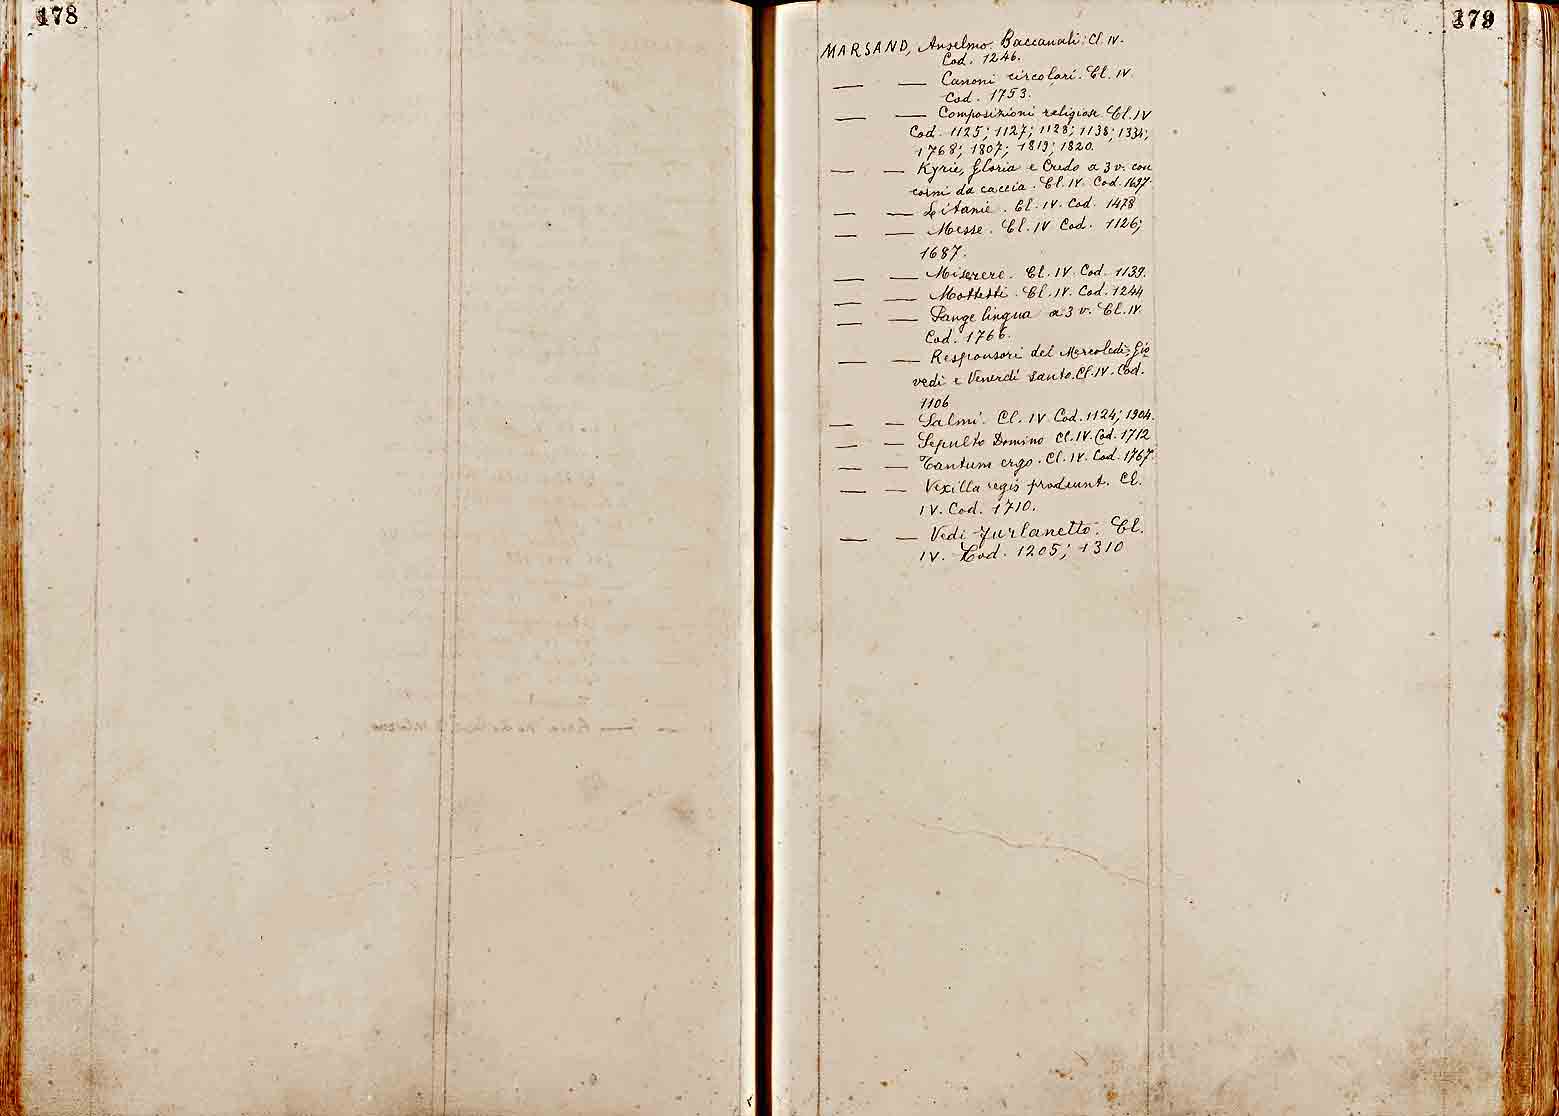 178
179
MARSAND, Anselmo. Baccanali. Cl. IV.
Cod. 1246.
— — Canoni circolari. Cl. IV.
Cod. 1753.
— — Composizioni religiose. Cl. IV
Cod. 1125; 1127; 1128; 1138; 1334;
1768; 1807; 1819; 1820.
— — Kyrie, Gloria e Credo a 3 v. con
corni da caccia. Cl. IV. Cod. 1697.
— — Litanie. Cl. IV. Cod. 1478
— — Messe. Cl. IV Cod. 1126;
1687.
— — Miserere. Cl. IV. Cod. 1139.
— — Mottetti. Cl. IV. Cod. 1244
— — Pange lingua a 3 v. Cl. IV.
Cod. 1766.
— — Responsori del Mercoledì, Gio
vedì e Venerdì Santo. Cl. IV. Cod.
1106
— — Salmi. Cl. IV Cod. 1124; 1904.
— — Sepulto Domino Cl. IV. Cod. 1712
— — Tantum ergo. Cl. IV. Cod. 1767.
— — Vexilla regis prodeunt. Cl.
IV. Cod. 1710.
— — Vedi Furlanetto. Cl.
IV. Cod. 1205; 1310